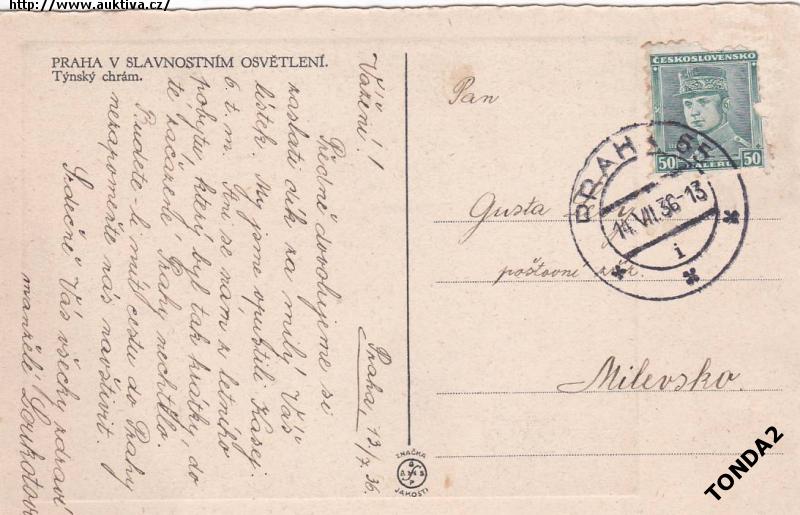 http://www.auktiva.cz/
PRAHA V SLAVNOSTNÍM OSVĚTLENÍ.
Týnský chrám.
Praha, 13/7. 36.
Vážení!
Předně dovolujeme si
zaslati dík za milý Váš
lístek. My jsme opustili Kasej.
6. t. m. Ani se nám z letního
pobytu, který byl tak krátký, do
té začarené Prahy nechtělo.
Budete-li míti cestu do Prahy
nezapomeňte nás navštívit.
Srdečně Vás všecky zdraví
manželé Loukotovi
Pan
Gusta
poštovní
Milevsko.
ČESKOSLOVENSKO
50 HALÉŘŮ 50
PRAHA 55
14.VII.36-13
i
ZNAČKA
JAKOSTI
TONDA2